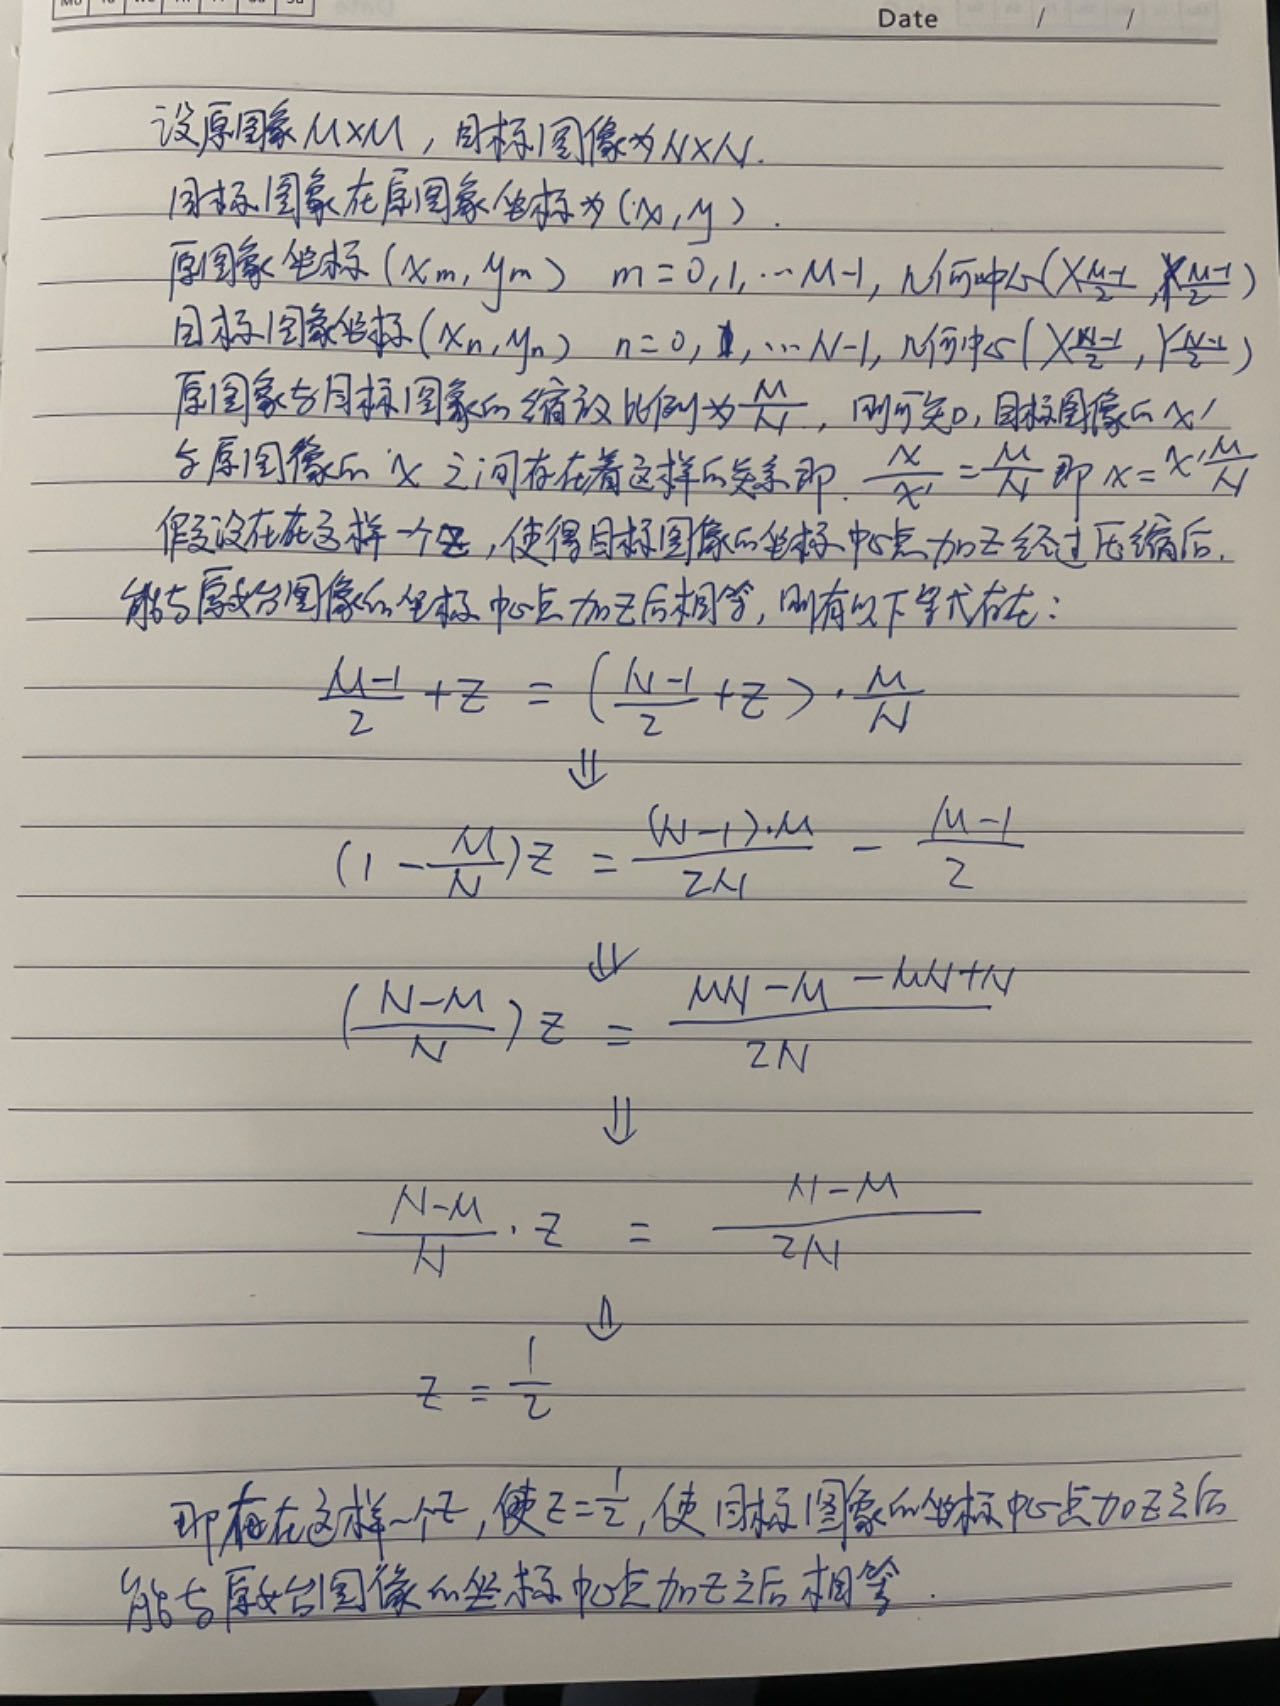 Mo Tu We Th Fr Sa Su
Date / /
设原图象M×M，目标图像为N×N.
目标图象在原图象坐标为(x,y).
原图象坐标(xm,ym) m=0,1,…M-1,几何中心(X(M-1)/2,Y(M-1)/2)
目标图象坐标(xn,yn) n=0,1,…N-1,几何中心(X(N-1)/2,Y(N-1)/2)
原图象与目标图象的缩放比例为M/N，则可知，目标图像的x'
与原图像的x之间存在着这样的关系即. x/x'=M/N即x=x'M/N
假设存在这样一个z,使得目标图像的坐标中心点加z经过压缩后,
能与原始图像的坐标中心点加z后相等,则有以下等式存在:
(M-1)/2+z=((N-1)/2+z)·M/N
⇓
(1-M/N)z=(N-1)·M/2N-(M-1)/2
⇓
((N-M)/N)z=(MN-M-MN+N)/2N
⇓
(N-M)/N·z=(N-M)/2N
⇓
z=1/2
即存在这样一个z,使z=1/2,使目标图象的坐标中心点加z之后
能与原始图像的坐标中心点加z之后相等.